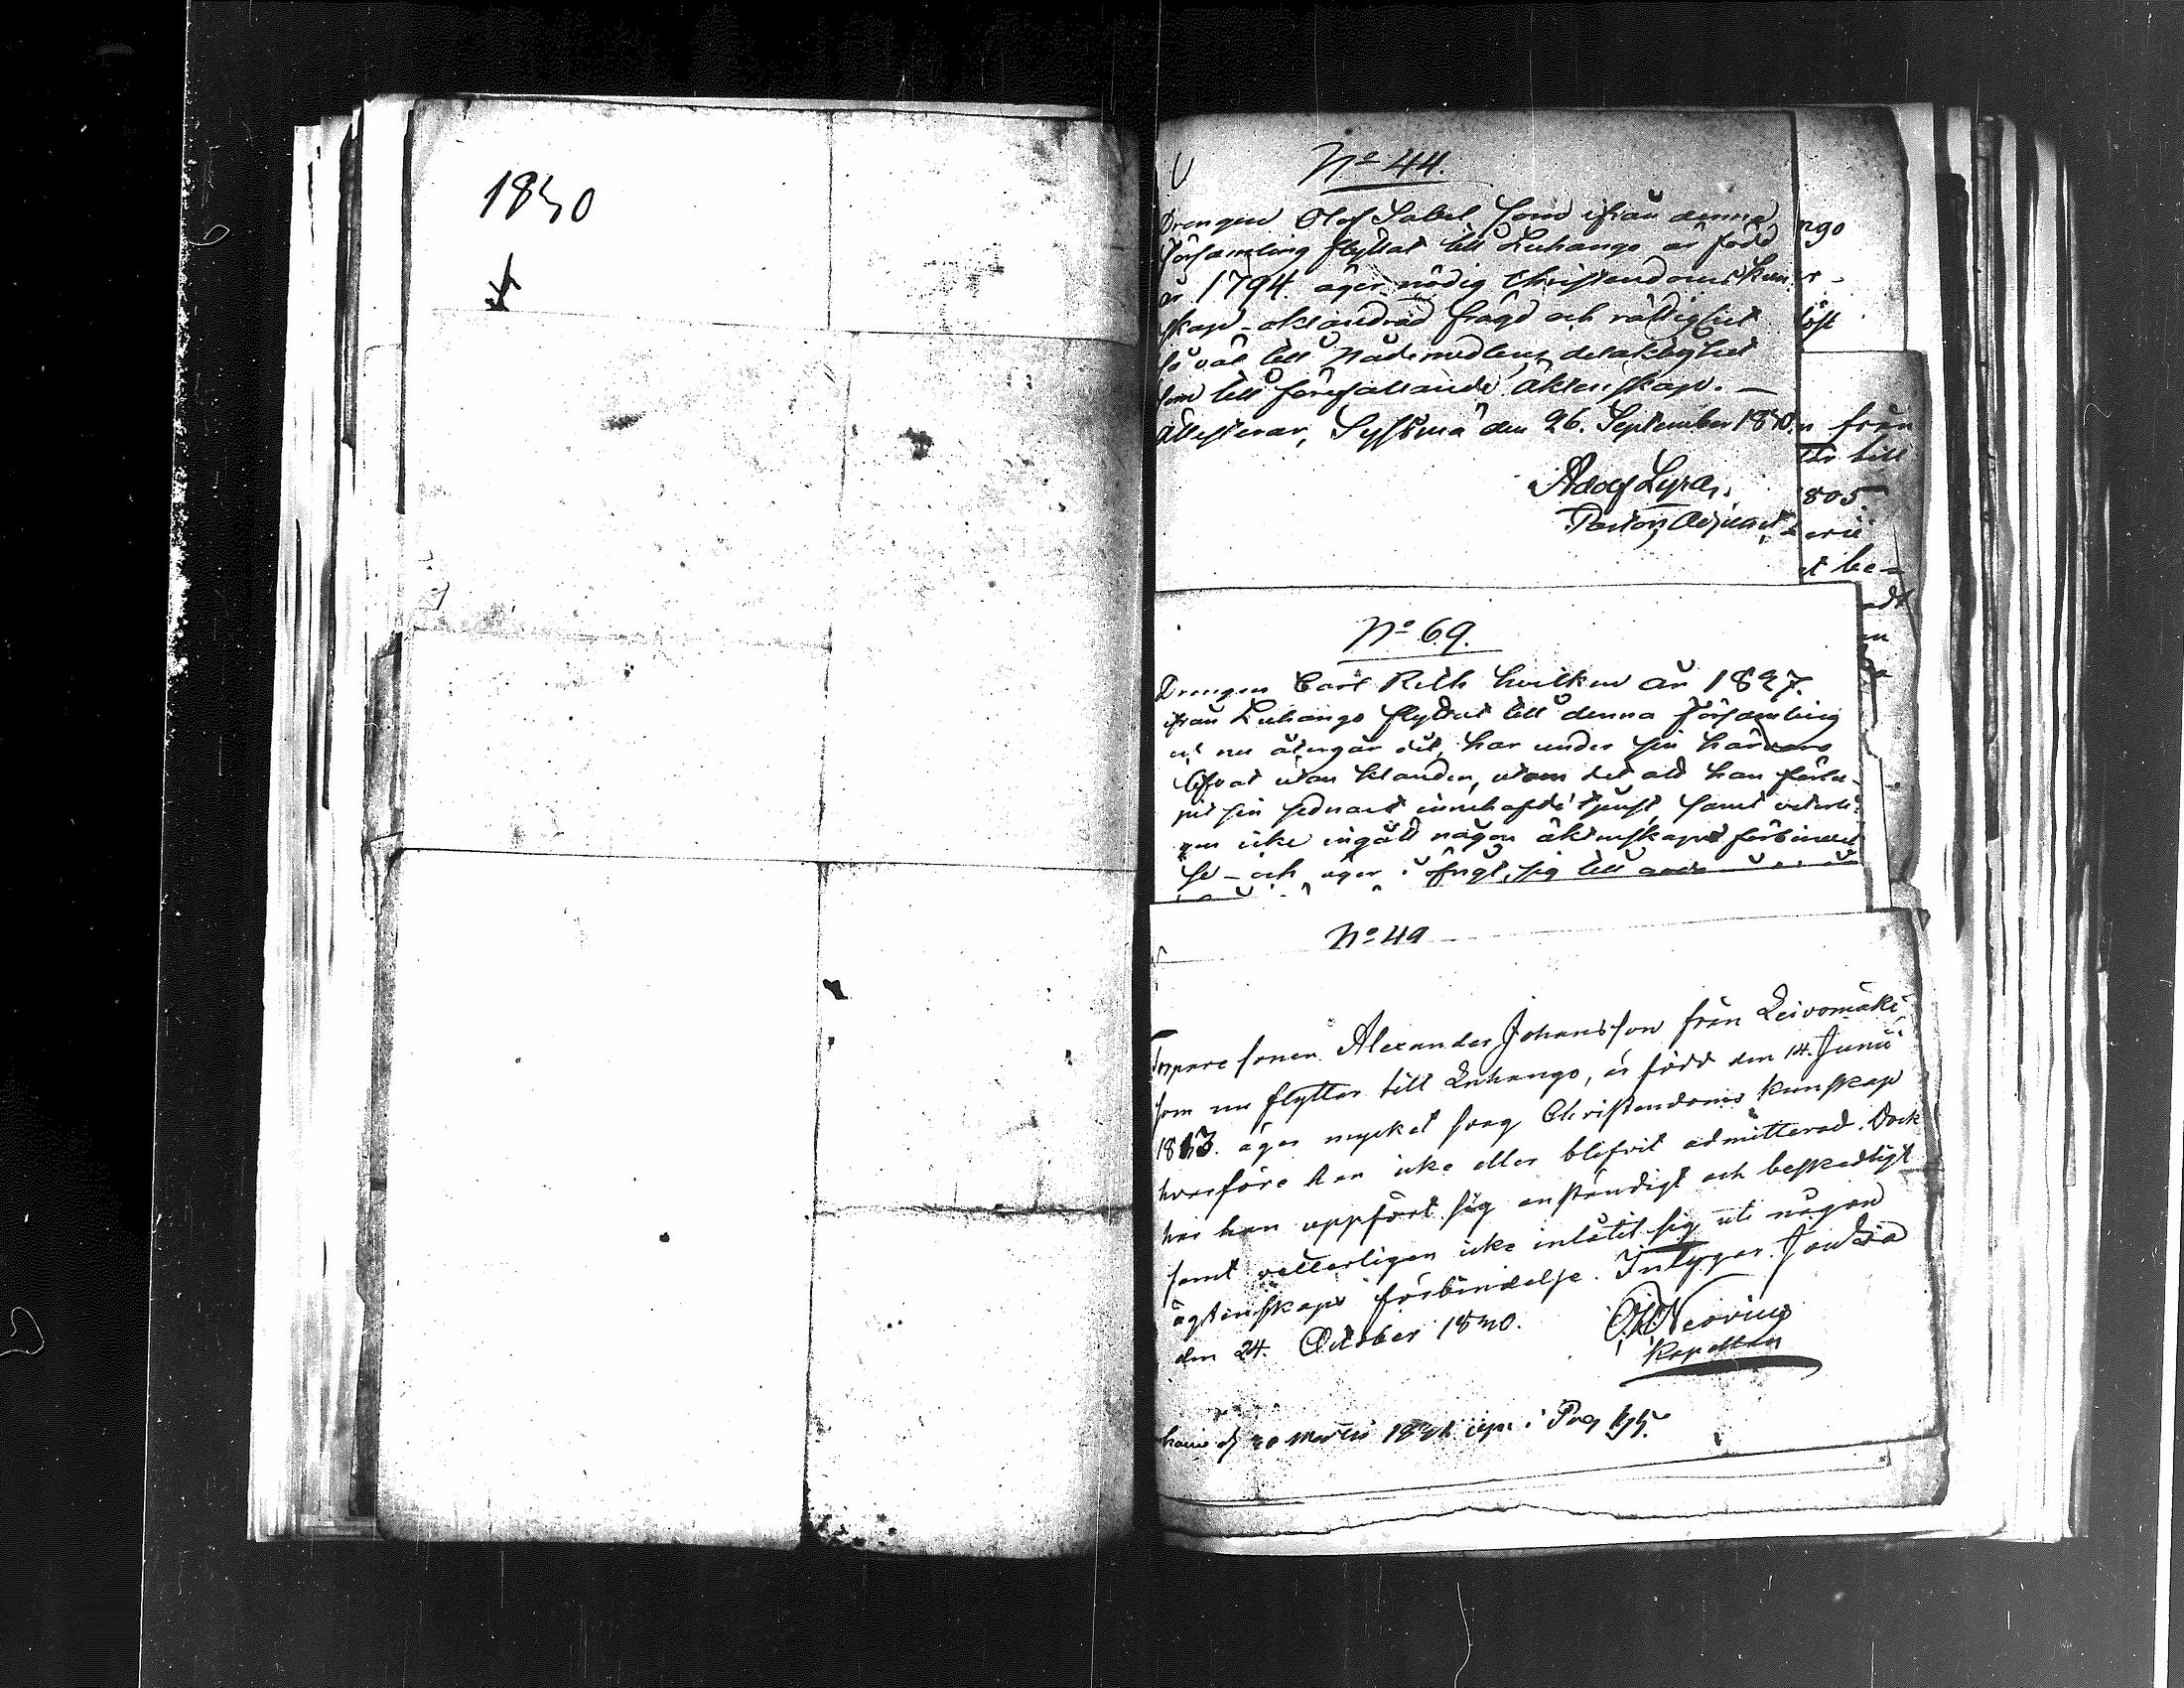 1830
No 44.
Drengen Olof Sabel som ifrån denna
Församling flyttat till Luhango är född
år 1794. äger nödig Christendoms kun-
skap - oklandrad frägd och rättighet
så väl till Nådemedlens delaktighet
som till förefallande äktenskap. —
Attesterar, Sysmä den 26. September 1830.
Adolf Lyra,
Pastors Adjunct
ngo
löst
från
till
1805
t be-
No 69.
Drengen Carl Reth hvilken år 1827.
ifrån Luhango flyttat till denna församling
och nu återgår dit, har under sin härvaro
lefvat utan klander, utom det att han förlu-
pit sin sednast innehafde tjenst, samt veterli-
gen icke ingått någon äktenskaps förbindel
se - och äger i öfrigt sig till
No 49
Torpare sonen Alexander Johansson från Leivomäki,
som nu flyttar till Luhango, är född den 14. Junii
1813. äger mycket svag Christendoms kunskap
hvarföre han icke eller blifvit admitterad. Dock
har han uppfört sig anständigt och beskedligt
samt vetterligen icke inlåtit sig uti någon
ägtenskaps förbindelse. Intygar. Joutsa
den 24. October 1830.
Neovius
Kapellan